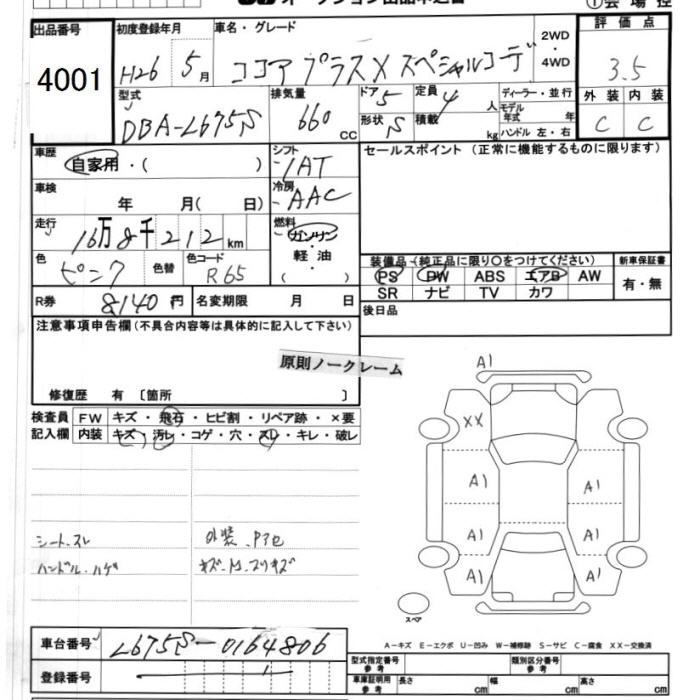 オークション出品申込書 ①会場控
出品番号 初度登録年月 車名・グレード 2WD ・ 4WD 評価点
4001 H26 5月 ココア プラスX スペシャルコーデ 3.5
型式 排気量 ドア 5 定員 4人 ディーラー・並行 外装 内装
DBA-L675S 660cc 形状 S 積載 kg モデル年式 年 ハンドル 左・右 C C
車歴 自家用・( ) シフト IAT セールスポイント (正常に機能するものに限ります)
車検 年 月( 日) 冷房 AAC
走行 16万8千212km 燃料 ガソリン・軽油・( )
色 ピンク 色替 色コード R65
装備品 (純正品に限り○をつけてください) 新車保証書
PS PW ABS エアB AW 有・無
SR ナビ TV カワ
R券 8140円 名変期限 月 日 後日品
注意事項申告欄 (不具合内容等は具体的に記入して下さい)
原則ノークレーム
修復歴 有 〔箇所 〕
検査員 FW キズ・飛石・ヒビ割・リペア跡・×要
記入欄 内装 キズ・汚レ・コゲ・穴・スレ・キレ・破レ
A1
XX
A1 A1
A1 A1
A1 A1
シート.スレ 外装.
ハンドル.ハゲ キズ.
スペア
車台番号 L675S-0164806
A-キズ E-エクボ U-凹み W-補修跡 S-サビ C-腐食 XX-交換済
登録番号 型式指定番号 参考 類別区分番号 参考
車庫証明用 参考 長さ cm 幅 cm 高さ cm